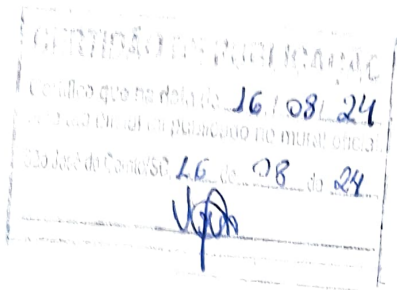 CERTIDÃO DE PUBLICAÇÃO
Certifico que na data de 16 / 08 / 24
foi publicado no mural oficial
São José do Cerrito/SC, 16 de 08 de 24